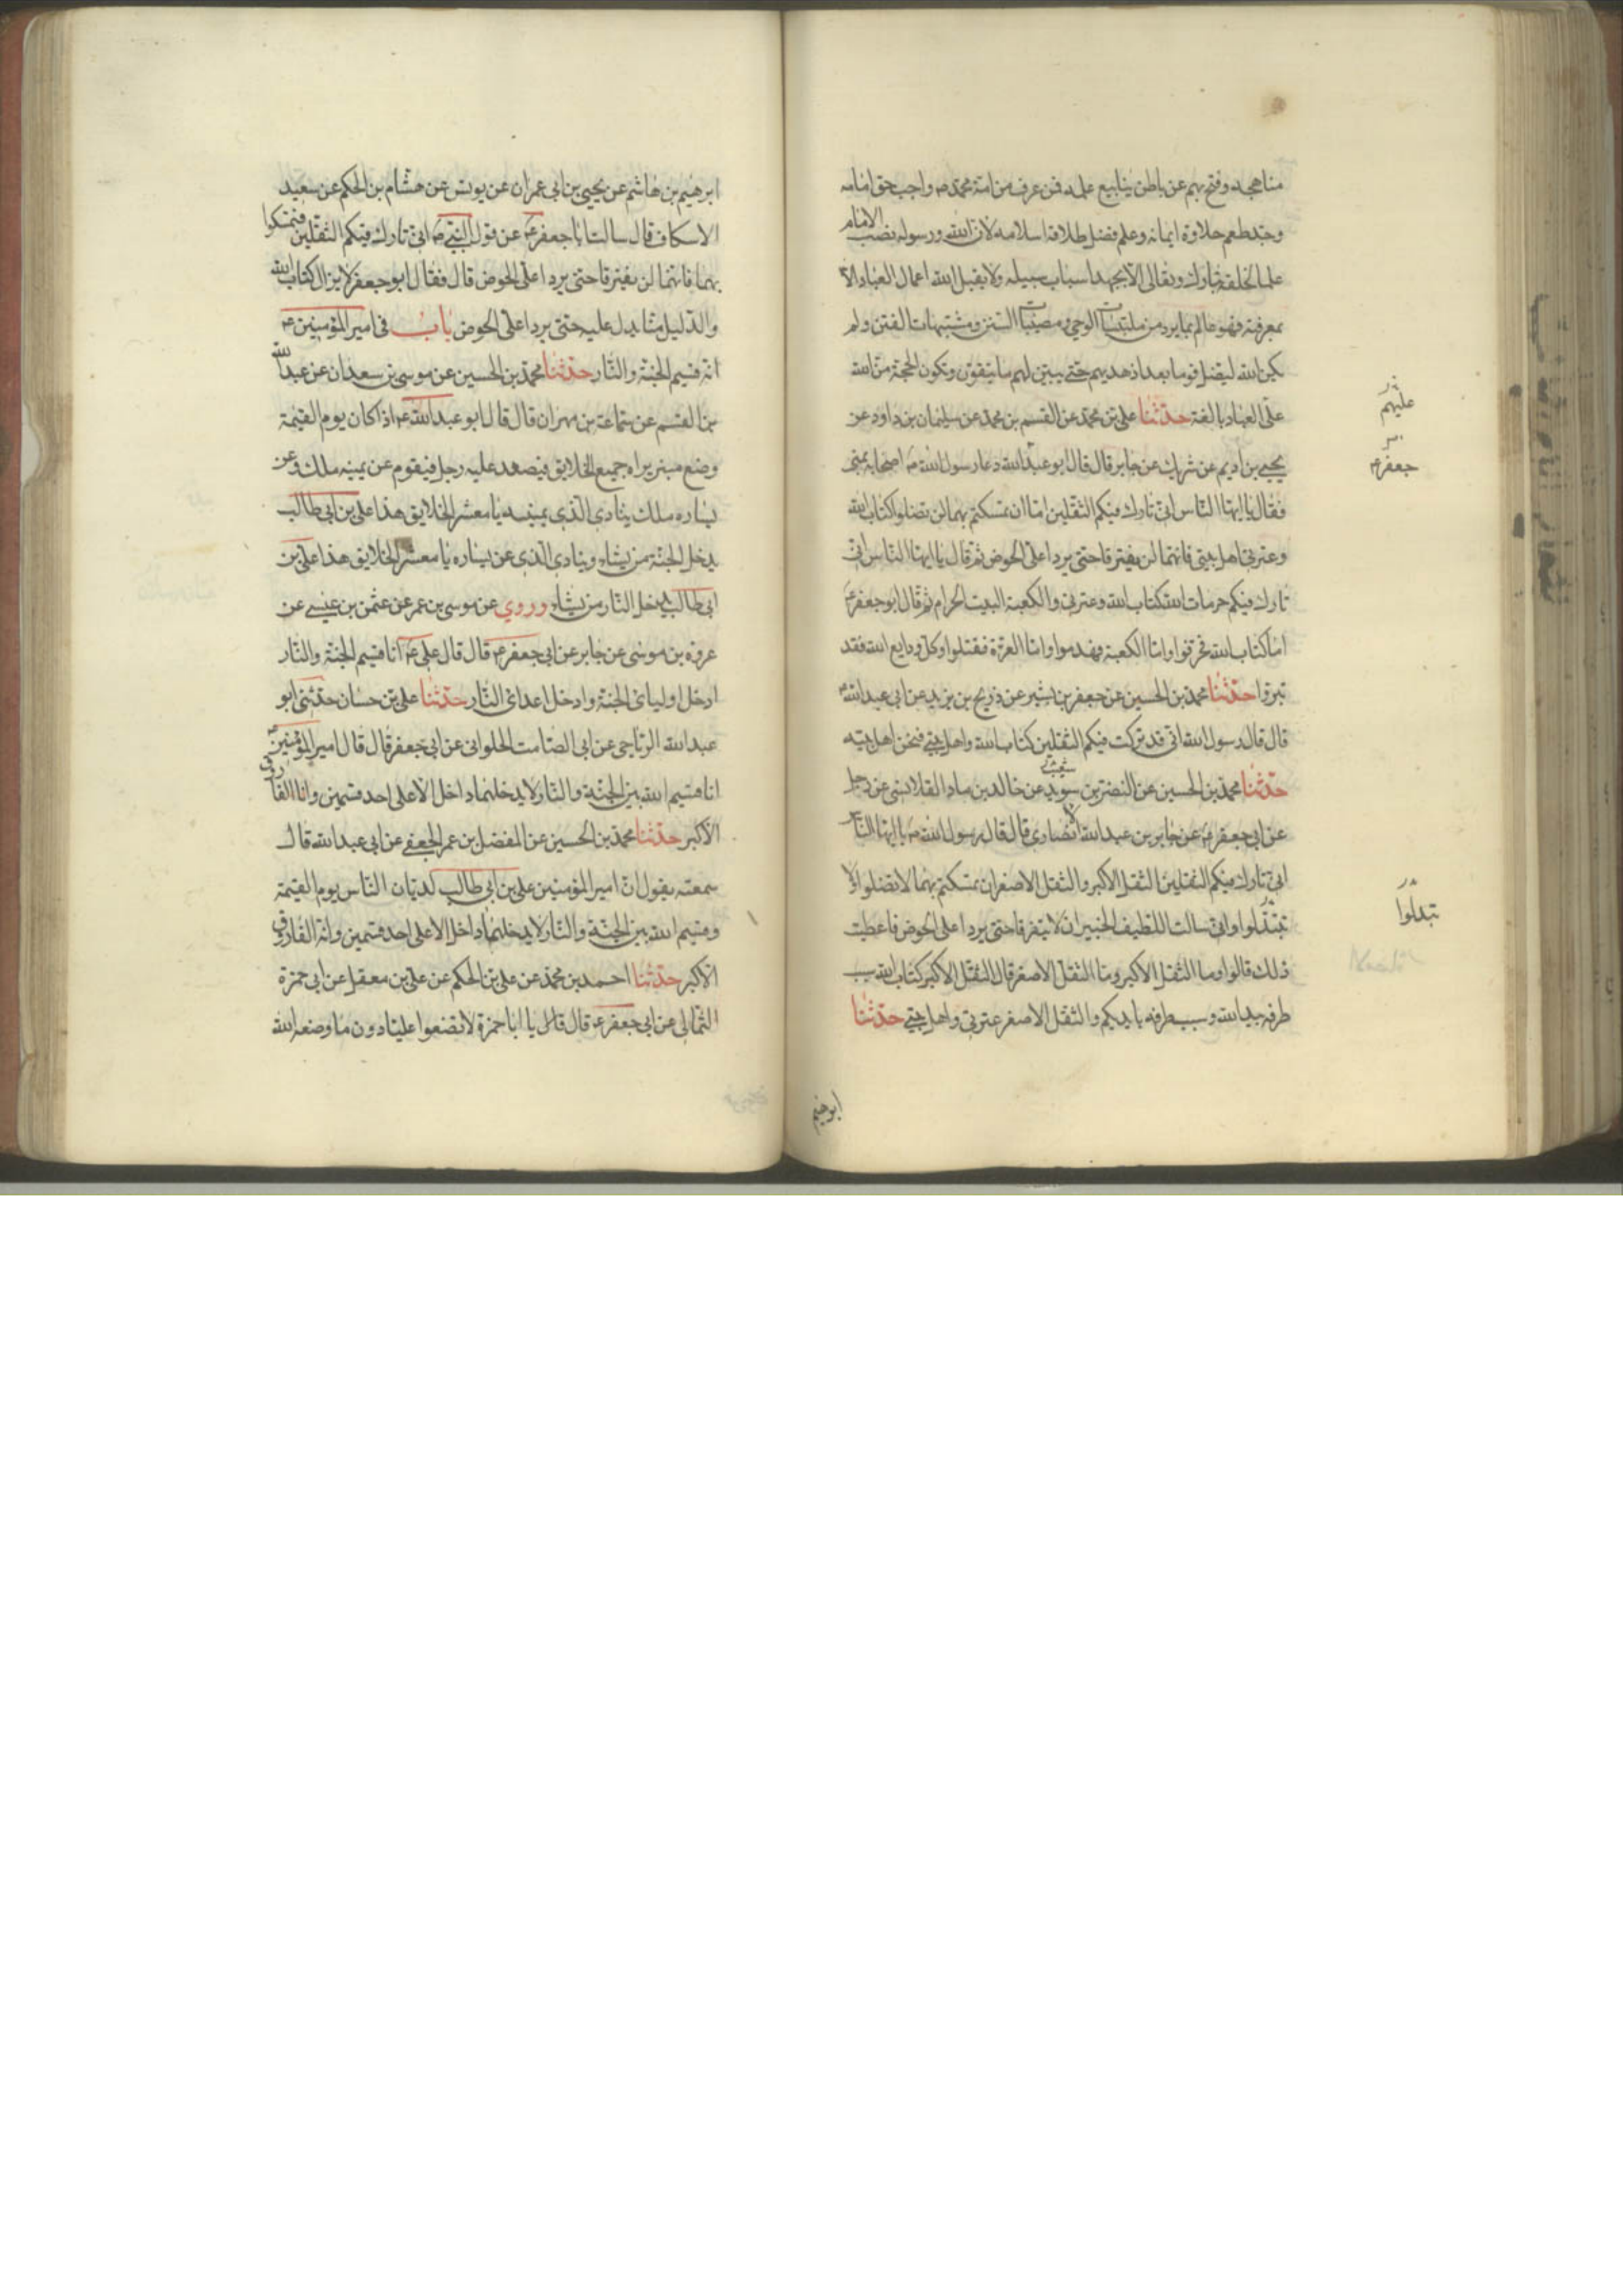 مناهجه وفتح بهم عن باطن ينابيع علمه فمن عرف من امة محمد ص واجب حق امامه
وجد طعم حلاوة ايمانه وعلم فضل طلاقة اسلامه لان الله ورسوله نصب الامام
علما لخلقه تبارك وتعالى الا بجهد اسباب سبيله ولا يقبل الله اعمال العباد الا
بمعرفته فهو عالم بما يرد من ملتبسات الوحي ومصيبات السنن ومشتبهات الفتن ولم
يكن الله ليضل قوما بعد اذ هديهم حتى يبين لهم ما يتقون وتكون الحجة من الله
على العباد بالغة حدثنا على بن محمد عن القسم بن محمد عن سليمان بن داود عن
عليهم
يحيى بن اديم عن شريك عن جابر قال قال ابو عبد الله دعا رسول الله ص اصحابه بمنى
جعفر ع
فقال يا ايها الناس انى تارك فيكم الثقلين اما ان تمسكتم بهما لن تضلوا كتاب الله
وعترتى اهل بيتى فانهما لن يفترقا حتى يردا على الحوض ثم قال يا ايها الناس انى
تارك فيكم حرمات الله كتاب الله وعترتى والكعبة البيت الحرام ثم قال ابو جعفر ع
اما كتاب الله فحرفوا واما الكعبة فهدموا واما العترة فقتلوا وكل ودايع الله فقد
تبروا حدثنا محمد بن الحسين عن جعفر بن بشير عن ذريح بن يزيد عن ابى عبد الله ع
قال قال رسول الله انى قد تركت فيكم الثقلين كتاب الله واهل بيتى فنحن اهل بيته
حدثنا محمد بن الحسين عن النضر بن سويد عن خالد بن ماد القلانسى عن رجل
عن ابى جعفر ع عن جابر بن عبد الله الانصارى قال قال رسول الله ص يا ايها الناس
انى تارك فيكم الثقلين الثقل الاكبر والثقل الاصغر ان تمسكتم بهما لا تضلوا ولا
تبدلوا
تتبدلوا وانى سالت اللطيف الخبير ان لا يتفرقا حتى يردا على الحوض فاعطيت
ذلك قالوا وما الثقل الاكبر وما الثقل الاصغر قال الثقل الاكبر كتاب الله سبب
طرفه بيد الله وسبب طرفه بايديكم والثقل الاصغر عترتى واهل بيتى حدثنا
ابرهيم
ابرهيم بن هاشم عن يحيى بن ابى عمران عن يونس عن هشام بن الحكم عن سعيد
الاسكاف قال سالت ابا جعفر ع عن قول النبى ص انى تارك فيكم الثقلين فتمسكوا
بهما فانهما لن يفترقا حتى يردا على الحوض قال فقال ابو جعفر لا يزال كتاب الله
والدليل منا يدل عليه حتى يردا على الحوض باب فى امير المؤمنين ع
انه قسيم الجنة والنار حدثنا محمد بن الحسين عن موسى بن سعدان عن عبد الله
بن القسم عن سماعة بن مهران قال قال ابو عبد الله ع اذا كان يوم القيمة
وضع منبر يراه جميع الخلايق فيصعد عليه رجل فيقوم عن يمينه ملك وعن
يساره ملك ينادى الذى بيمينه يا معشر الخلايق هذا على بن ابى طالب
يدخل الجنة من يشاء وينادى الذى عن يساره يا معشر الخلايق هذا على بن
ابى طالب يدخل النار من يشاء وروي عن موسى بن عمر عن عثمن بن عيسى عن
عروة بن موسى عن جابر عن ابى جعفر ع قال قال على ع انا قسيم الجنة والنار
ادخل اوليائى الجنة وادخل اعدائى النار حدثنا على بن حسان حدثنى ابو
عبد الله الرياحى عن ابى الصامت الحلوانى عن ابى جعفر قال قال امير المؤمنين ع
انا قسيم الله بين الجنة والنار لا يدخلهما داخل الا على احد قسمين وانا الفاروق
الاكبر حدثنا محمد بن الحسين عن المفضل بن عمر الجعفى عن ابى عبد الله قال
سمعته يقول ان امير المؤمنين على بن ابى طالب لديان الناس يوم القيمة
وقسيم الله بين الجنة والنار لا يدخلهما داخل الا على احد قسمين وانه الفاروق
الاكبر حدثنا احمد بن محمد عن على بن الحكم عن على بن معقل عن ابى حمزة
الثمالى عن ابى جعفر ع قال قال يا ابا حمزة لا تضعوا عليا دون ما وضعه الله